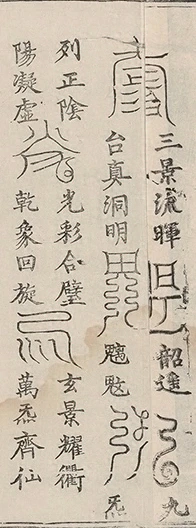 三景流暉 韶遥 九
台真洞明 炁
列正陰 光彩合璧 玄景耀衢
陽凝虛 乾象回旋 萬炁齊仙